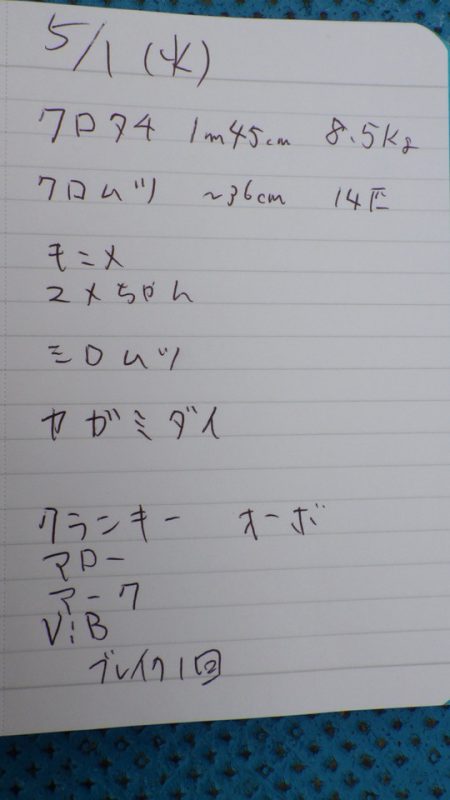 5/1 (水)
クロタチ 1m45cm 8.5kg
クロムツ ~36cm 14匹
モニメ
ユメちゃん
シロムツ
カガミダイ
クランキー オーボ
マロー
マーク
ViB
ブレイク1回